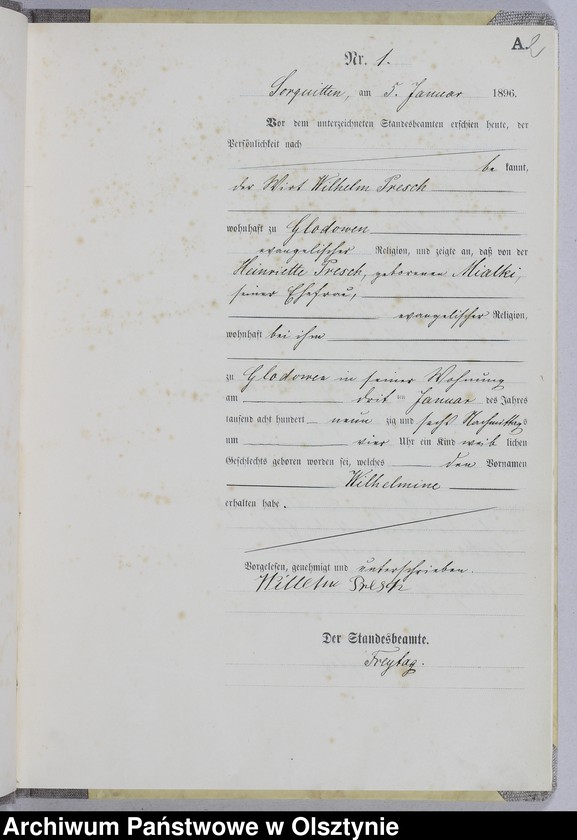 A. 2
Nr. 1.
Sorquitten, am 5. Januar 1896.
Vor dem unterzeichneten Standesbeamten erschien heute, der
Persönlichkeit nach
be kannt,
der Wirt Wilhelm Presch
wohnhaft zu Glodowen
evangelischer Religion, und zeigte an, daß von der
Heinriette Presch, geborenen Mialki,
seiner Ehefrau,
evangelischer Religion,
wohnhaft bei ihm
zu Glodowen in seiner Wohnung
am drit ten Januar des Jahres
tausend acht hundert neun zig und sechs Nachmittags
um vier Uhr ein Kind weib lichen
Geschlechts geboren worden sei, welches den Vornamen
Wilhelmine
erhalten habe.
Vorgelesen, genehmigt und unterschrieben.
Willelm Presch
Der Standesbeamte.
Freytag.
Archiwum Państwowe w Olsztynie